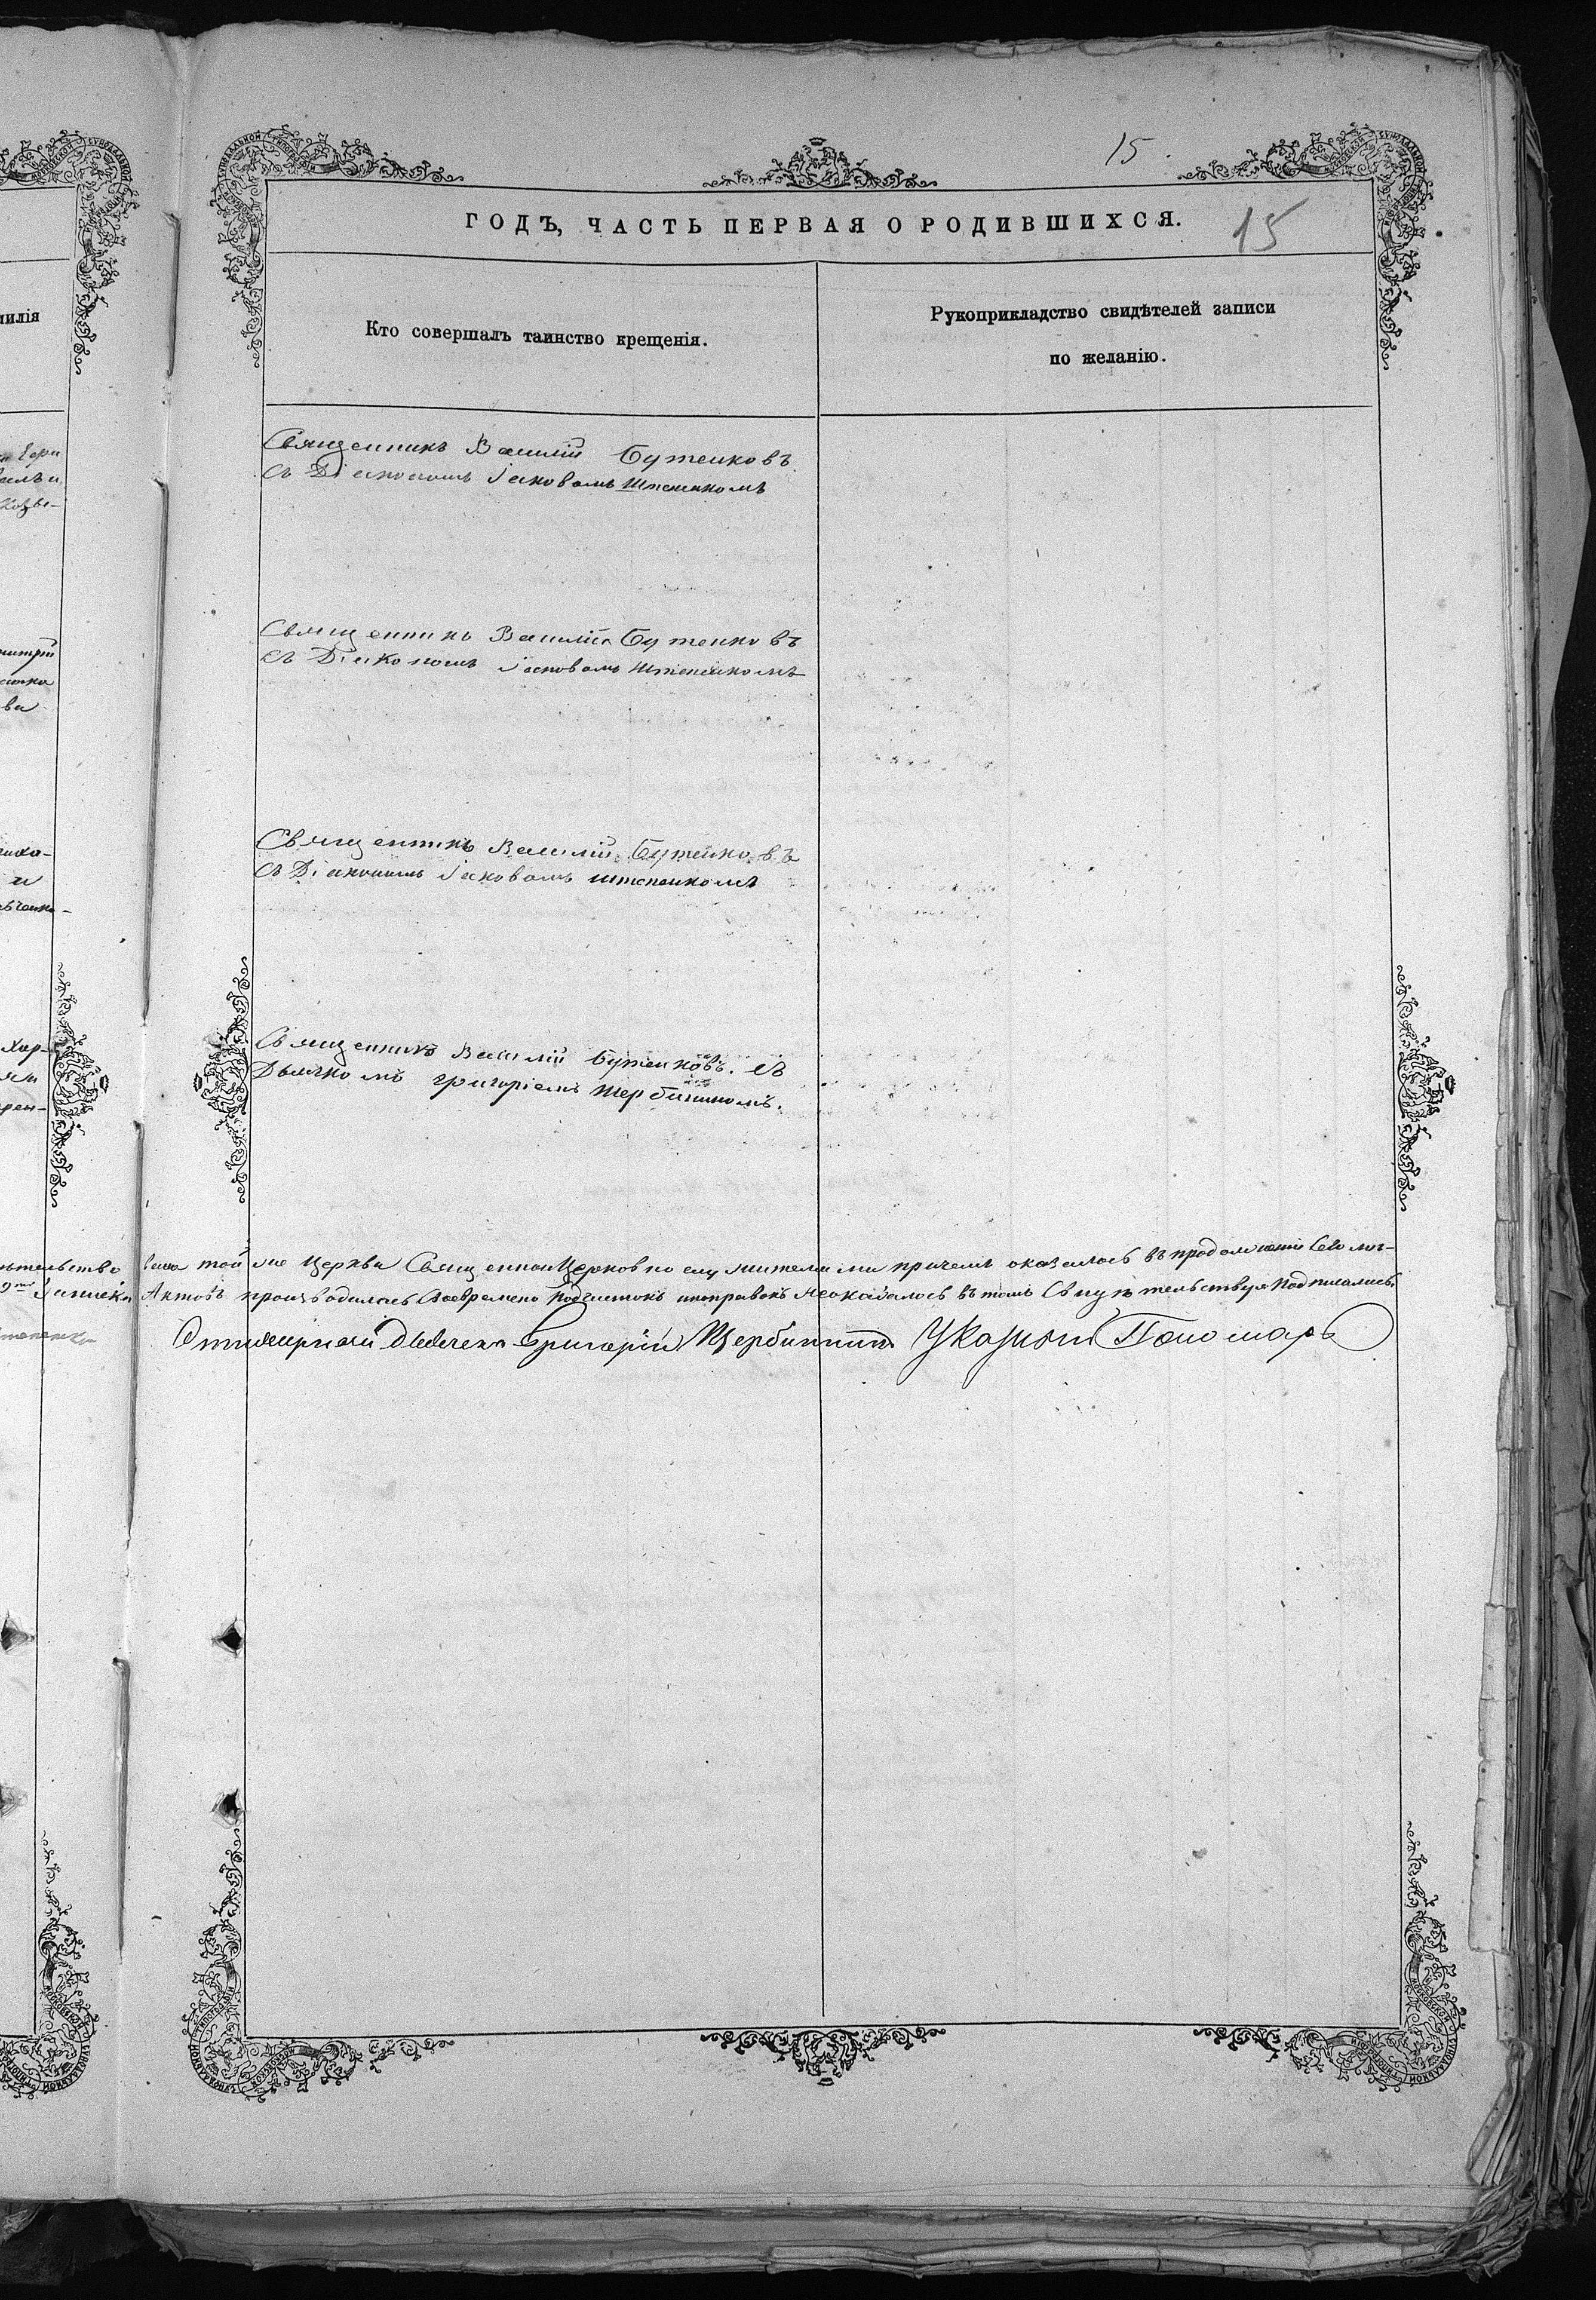 15.
ГОДЪ, ЧАСТЬ ПЕРВАЯ О РОДИВШИХСЯ. 15
милія
Кто совершалъ таинство крещенія.
Рукоприкладство свидѣтелей записи
по желанію.
Священникъ Василій Бутенковъ
съ Діакономъ Іаковомъ Штепенкомъ
Священникъ Василій Бутенковъ
съ Діакономъ Іаковомъ Штепенкомъ
Священникъ Василій Бутенковъ
съ Діакономъ Іаковомъ Штепенкомъ
Священникъ Василій Бутенковъ. съ
Дьячкомъ Григоріемъ Щербининомъ.
той же Церкви Священноцерковно служителями причемъ оказалось въ продолженіи сего мѣ-
Актовъ производилась Своевремено Подчистокъ ипоправокъ Неоказалось въ томъ Свидѣтельствуя Подписались
Григорій Щербининъ Указный Пономарь